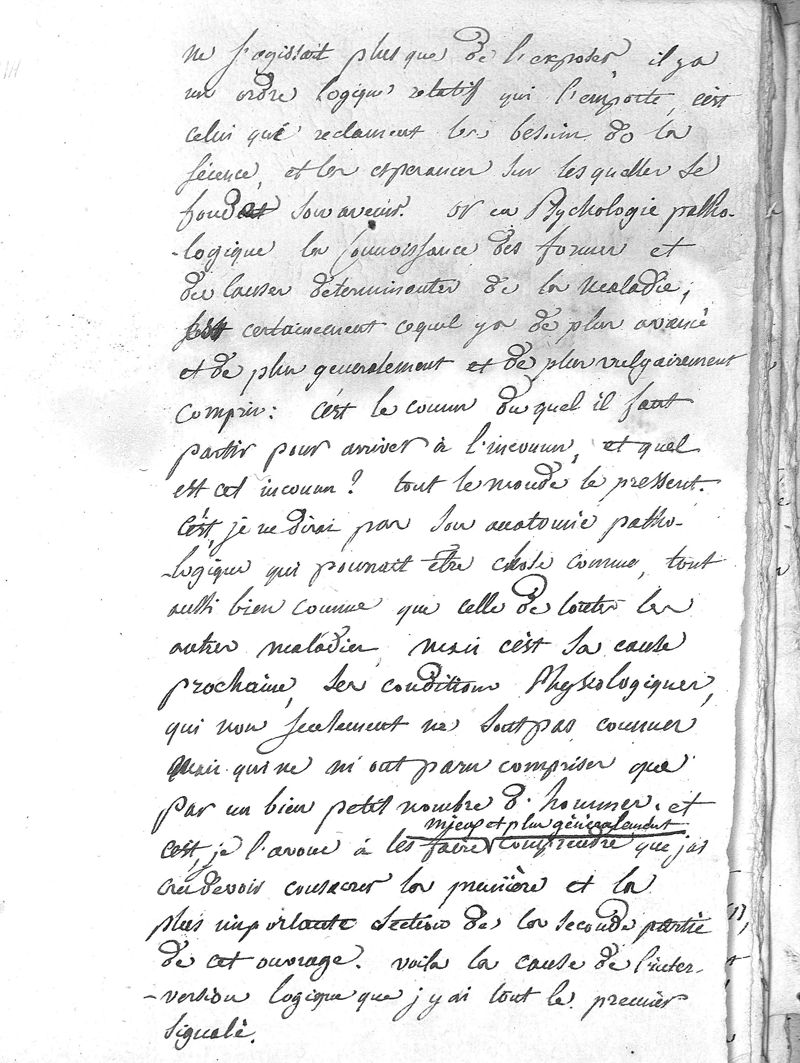 ne s'agissait plus que de l'exposer, il ya
un ordre logique relatif qui l'emporte, c'est
celui que reclament les besoins de la
science, et les esperances sur lesquelles se
fondent son avenir. or en Psychologie patho-
-logique la connoissance des formes et
de causes determinantes de la maladie,
est certainement cequil ya de plus avancé
et de plus generalement et de plus vulgairement
compris: c'est le connu du quel il faut
partir pour arriver à l'inconnu, et quel
est cet inconnu? tout le monde le pressent.
c'est, je ne dirai pas son anatomie patho-
-logique qui pourrait être chose connue, tout
aussi bien connue que celle de toutes les
autres maladies, mais c'est sa cause
prochaine, ses conditions Physiologiques,
qui non seulement ne sont pas connues
mais qui ne m'ont paru comprises que
par un bien petit nombre d'hommes. et
mieux et plus généralement
c'est, je l'avoue à les faire comprendre que j'ai
cru devoir consacrer la première et la
plus importante section de la seconde partie
de cet ouvrage. voila la cause de l'inter-
-version logique que j'y ai tout le premier
signalé.